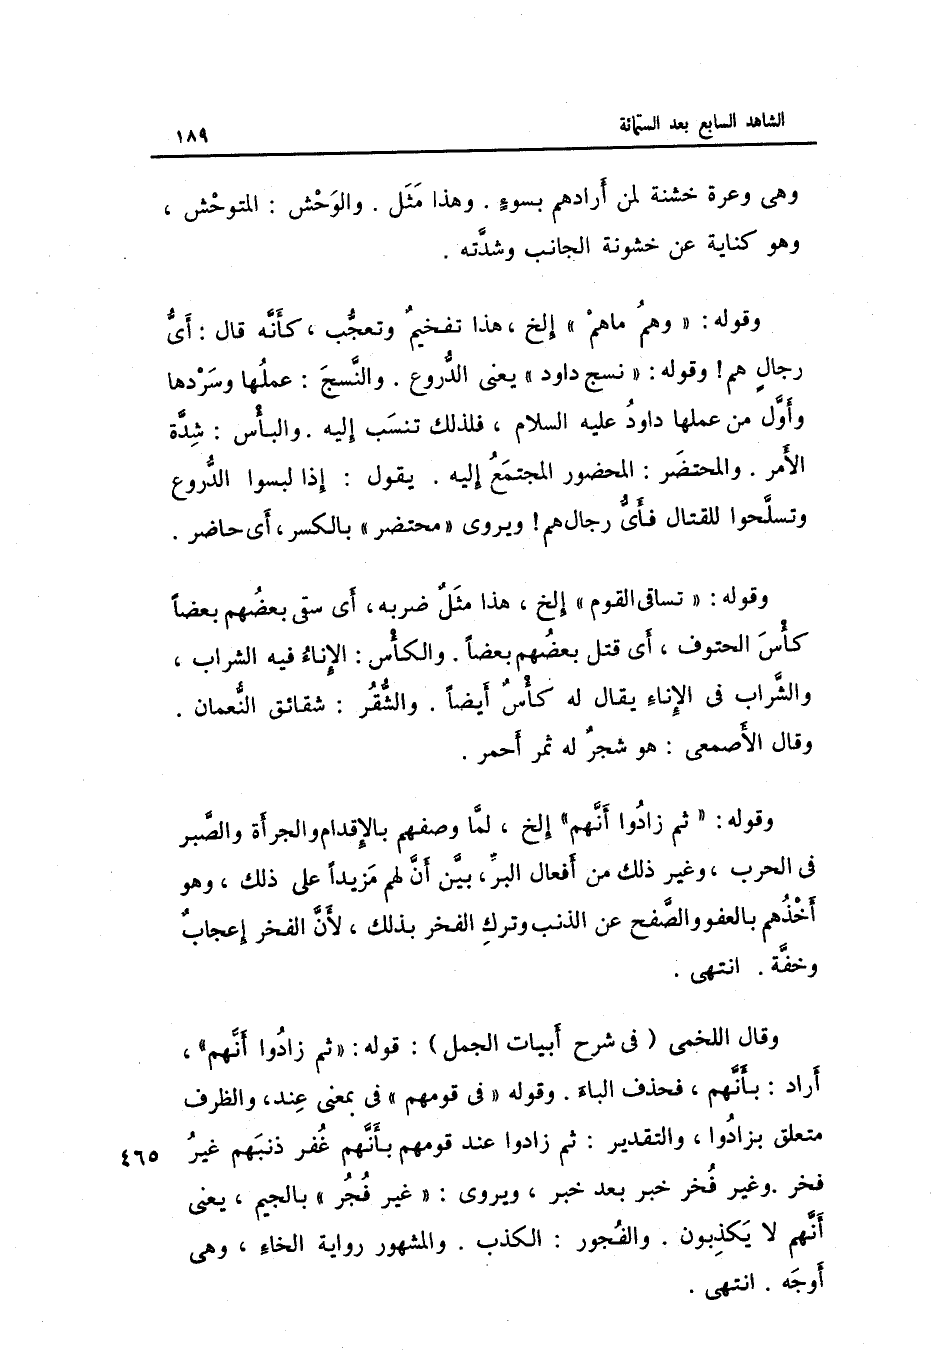 الشاهد السابع بعد الستمائة
١٨٩
وهى وعرة خشنة لمن أَرادهم بسوءٍ . وهذا مَثَل . والوَحْش : المتوحْش ،
وهو كناية عن خشونة الجانب وشدَّته .
وقوله : « وهمُ ماهمْ » إلخ ، هذا تفخيمٌ وتعجُّب ، كأَنَّه قال : أَىُّ
رجالٍ هم ! وقوله : « نسج داود » يعنى الدُّروع . والنَّسجَ : عملُها وسَرْدها
وأَوَّل من عملها داودُ عليه السلام ، فلذلك تنسَب إليه . والبأْس : شِدَّة
الأَمر . والمحتضَر : المحضور المجتمَعُ إليه . يقول : إذا لبسوا الدُّروع
وتسلَّحوا للقتال فأَىُّ رجال هم ! ويروى « محتضر » بالكسر ، أَى حاضر .
وقوله : « تساقى القوم » إلخ ، هذا مثَلٌ ضربه ، أَى سقى بعضُهم بعضاً
كأْسَ الحتوف ، أَى قتل بعضُهم بعضاً . والكأْس : الإِناءُ فيه الشراب ،
والشَّراب فى الإِناءِ يقال له كأْسٌ أَيضاً . والشُّقُر : شقائق النُّعمان .
وقال الأَصمعى : هو شجرٌ له ثمر أَحمر .
وقوله : « ثم زادُوا أَنَّهم » إلخ ، لمَّا وصفهم بالإِقدام والجرأَة والصَّبر
فى الحرب ، وغير ذلك من أَفعال البرِّ ، بيَّن أَنَّ لهم مَزيداً على ذلك ، وهو
أَخْذُهم بالعفو والصَّفح عن الذنب وتركِ الفخر بذلك ، لأَنَّ الفخر إعجابٌ
وخفَّة . انتهى .
وقال اللخمى ( فى شرح أَبيات الجمل ) : قوله : « ثم زادُوا أَنَّهم » ،
أَراد : بأَنَّهم ، فحذف الباءَ . وقوله « فى قومهم » فى بمعنى عِند ، والظرف
متعلق بزادُوا ، والتقدير : ثم زادوا عند قومهم بأَنَّهم غُفر ذنبَهم غيرُ
٤٦٥
فخر . وغير فُخر خبر بعد خبر ، ويروى : « غير فُجُر » بالجيم ، يعنى
أَنَّهم لا يَكذِبون . والفُجور : الكذب . والمشهور رواية الخاءِ ، وهى
أَوجَه . انتهى .